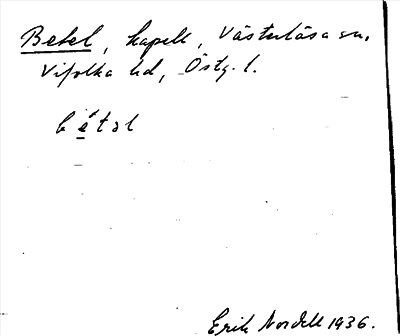 Betel, kapell, Västerlösa sn,
Vifolka hd, Östg. l.
bétəl
Erik Nordell 1936.